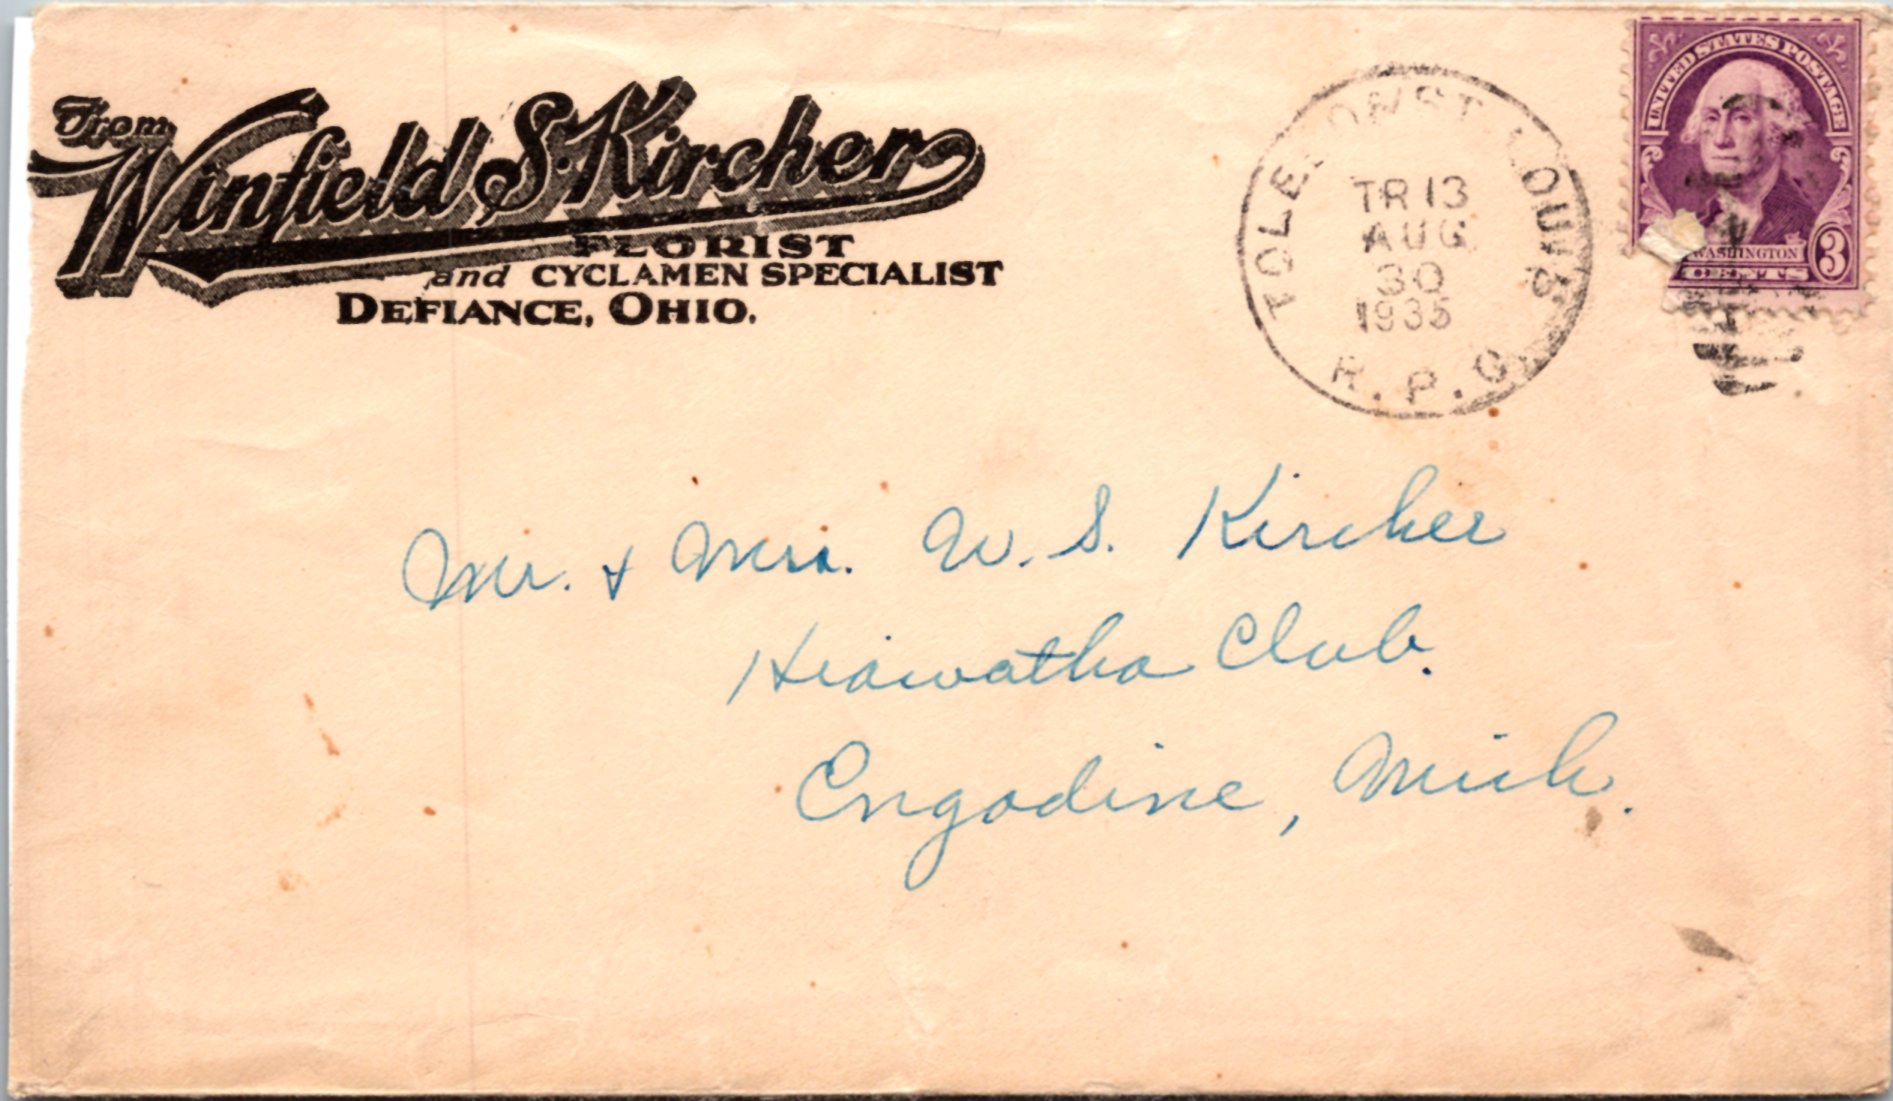 From
Winfield S. Kircher
FLORIST
and CYCLAMEN SPECIALIST
DEFIANCE, OHIO.
TOLE. ON ST LOUIS
TR 13
AUG
30
1935
R.P.O.
UNITED STATES POSTAGE
WASHINGTON
CENTS 3
Mr. & Mrs. W. S. Kircher
Hiawatha Club.
Engadine, Mich.